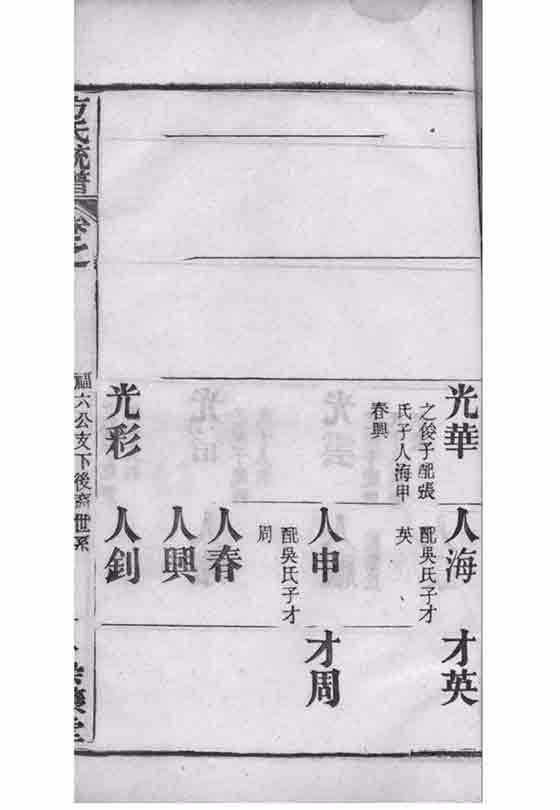 光華
之俊子配張
氏子人海申
春興
光彩
人海
配吳氏子才
英
人申
配吳氏子才
周
人春
人興
人釗
才英
才周
方氏統譜
卷之一
福六公支下後裔世系